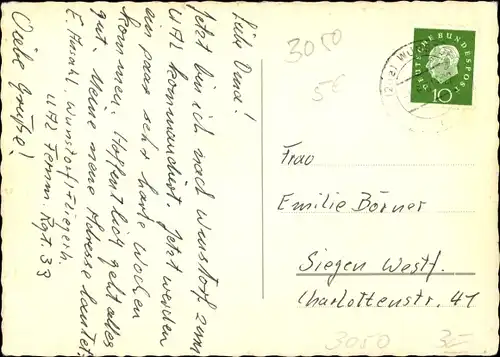 Liebe Omi!
Jetzt bin ich nach Wunstorf zum
UAL kommandiert. Jetzt werden
ein paar sehr harte Wochen
kommen. Hoffentlich geht alles
gut. Meine neue Adresse lautet:
Wunstorf-Fliegerh.
UAL Fernm. Rgt. 33
Liebe Grüße!
3050
5€
DEUTSCHE BUNDESPOST
10
Frau
Emilie Börner
Siegen Westf.
Charlottenstr. 41
3050